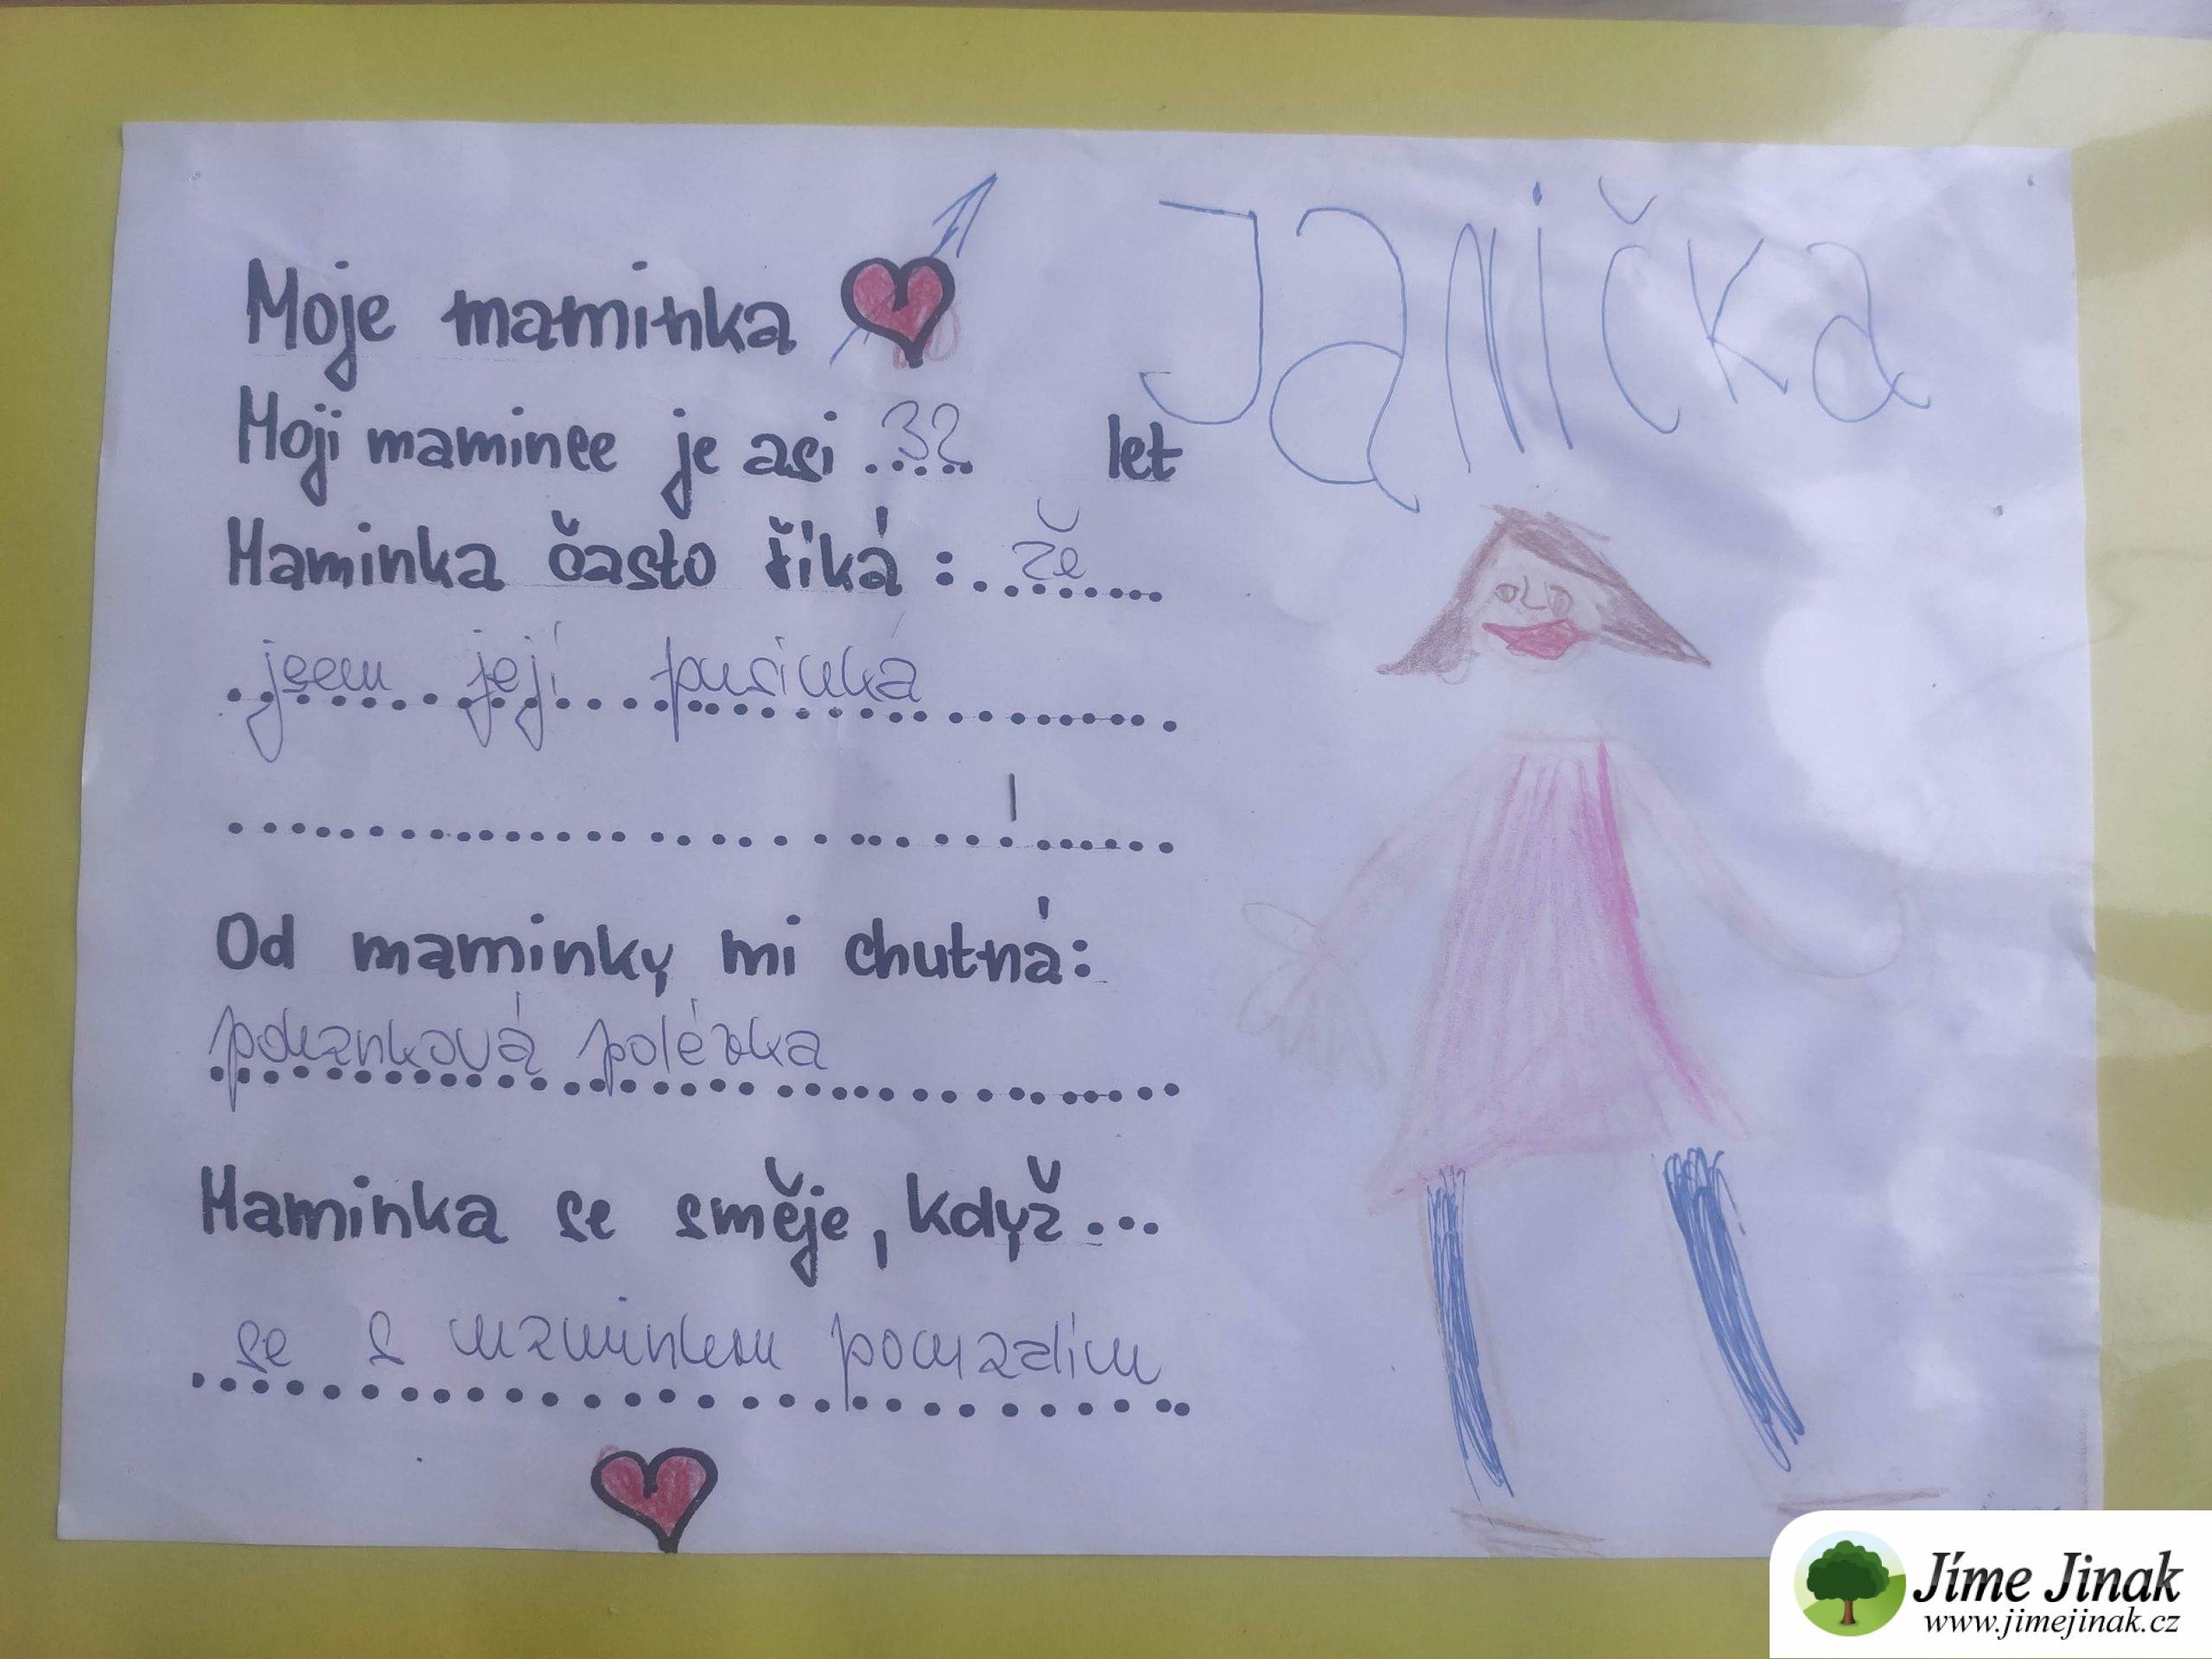 Moje maminka
Janička
Moji mamince je asi ..32.. let
Maminka často říká : že
jsem její pusinka
Od maminky mi chutná:
polévka
Maminka se směje, když ...
se s maminkou pomazlím
Jíme Jinak
www.jimejinak.cz